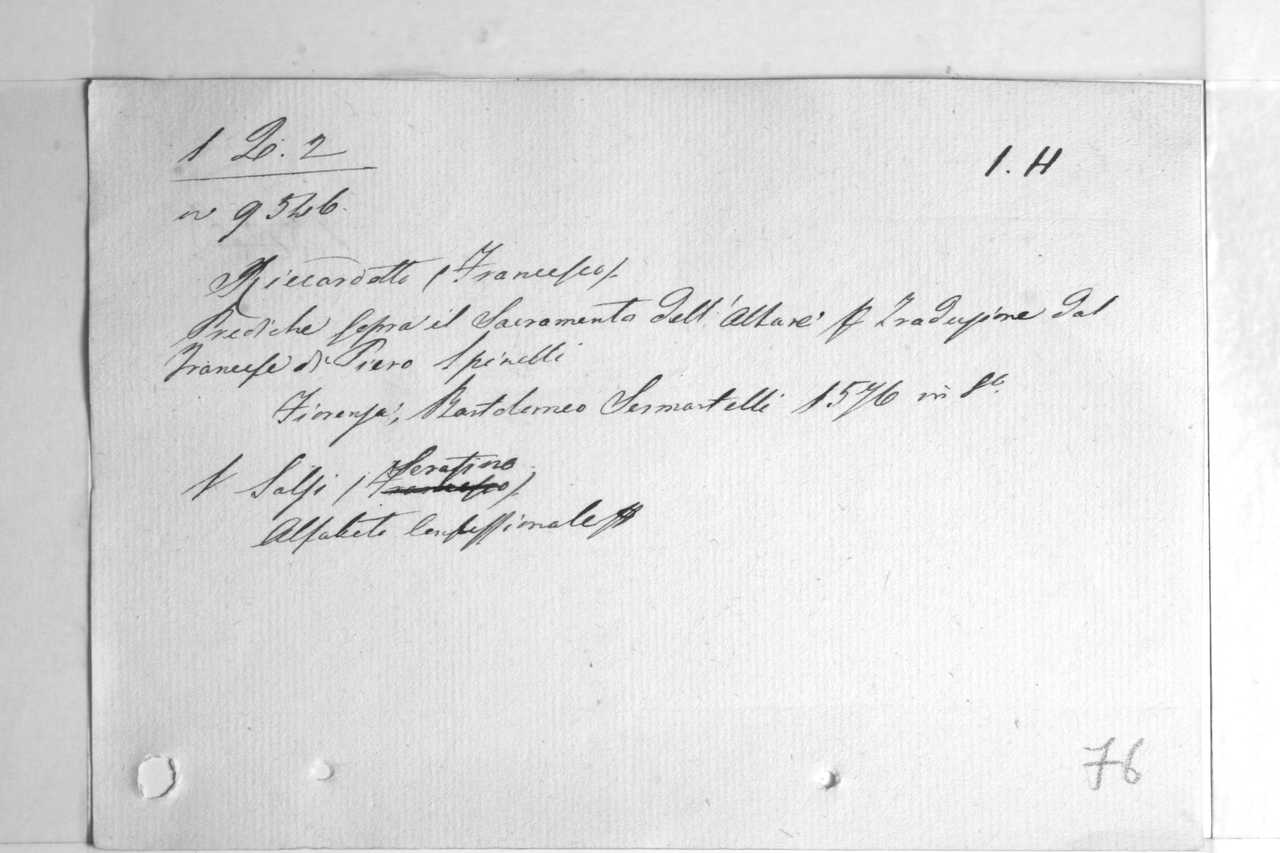 1 L. 2
1. H
n 9546.
Riccardotto (Francesco).
Prediche sopra il Sacramento dell'Altare Traduzione dal
Francese di Piero Spinelli
Fiorenza, Bartolomeo Sermartelli 1576 in 8º.
V Salfi (Serafino).
Alfabeto Confessionale
76